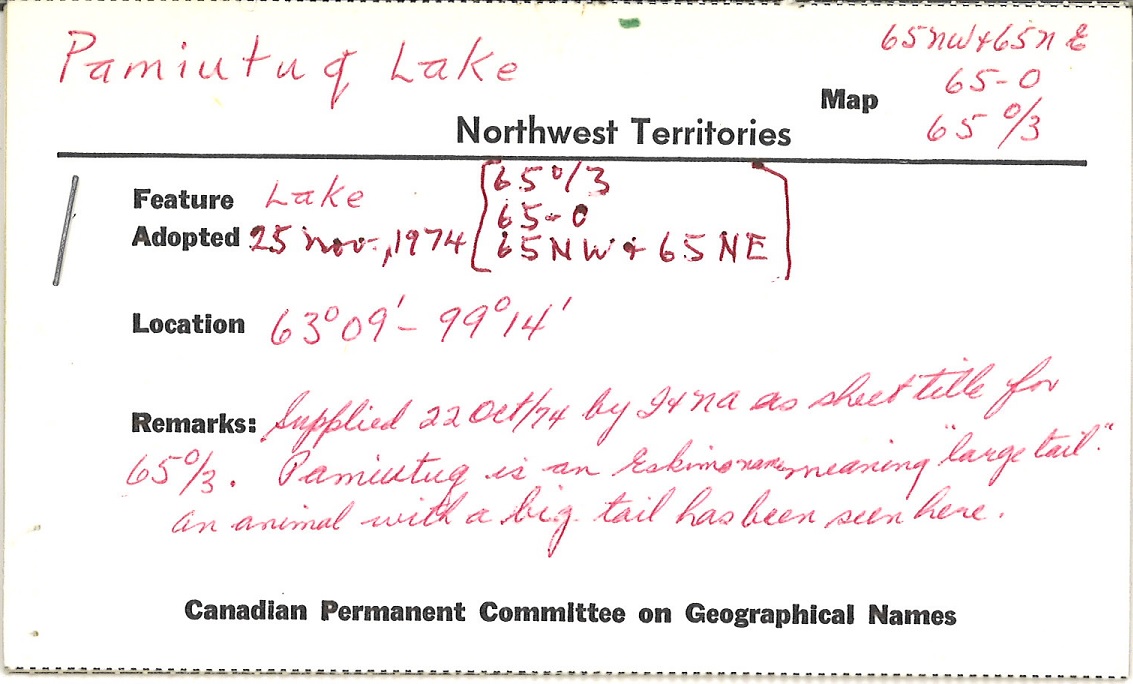 Pamiutuq Lake
65NW+65NE
65-O
Map
65 O/3
Northwest Territories
Feature Lake
65 O/3
65-O
Adopted 25 Nov., 1974
65NW + 65NE
Location 63°09'- 99°14'
Remarks: Supplied 22 Oct/74 by as sheet title for
65 O/3. Pamiutuq is an Eskimo name meaning "large tail".
An animal with a big tail has been seen here.
Canadian Permanent Committee on Geographical Names